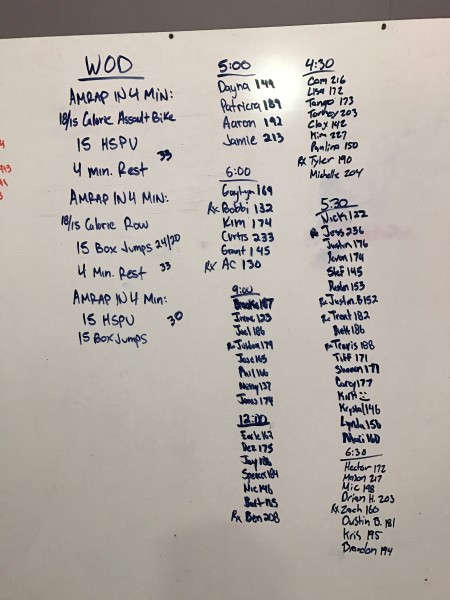 WOD
AMRAP IN 4 MIN:
18/15 Calorie Assault Bike
15 HSPU
4 min. Rest 33
AMRAP IN 4 MIN:
18/15 Calorie Row
15 Box Jumps 24/20
4 Min. Rest 33
AMRAP IN 4 Min:
15 HSPU 30
15 Box Jumps
5:00
Dayna 149
Patricia 189
Aaron 192
Jamie 213
6:00
169
Rx Bobbi 132
Kim 174
Curtis 233
Grant 145
Rx AC 130
9:00
Brooke 187
Irene 123
Joel 186
Rx 179
Jose 165
Phil 166
137
James 174
12:00
162
Dez 175
Jay 186
Spencer 184
Nic 146
Rx Ben 208
4:30
Cam 216
Lisa 172
Tango 173
203
Clay 142
Kim 227
Paulina 150
Rx Tyler 190
Michelle 204
5:30
Vicki 122
Jess 236
Justin 176
174
Stef 145
153
Rx Justin B 152
Rx Trent 182
Brett 186
Rx Travis 188
Tiff 171
Shannon 171
Corey 177
Kirk
Krystal 146
Lynda 156
160
6:30
Hector 172
217
Mic 198
Brian H. 203
Rx Zach 160
Dustin B. 181
Kris 195
Brandon 194